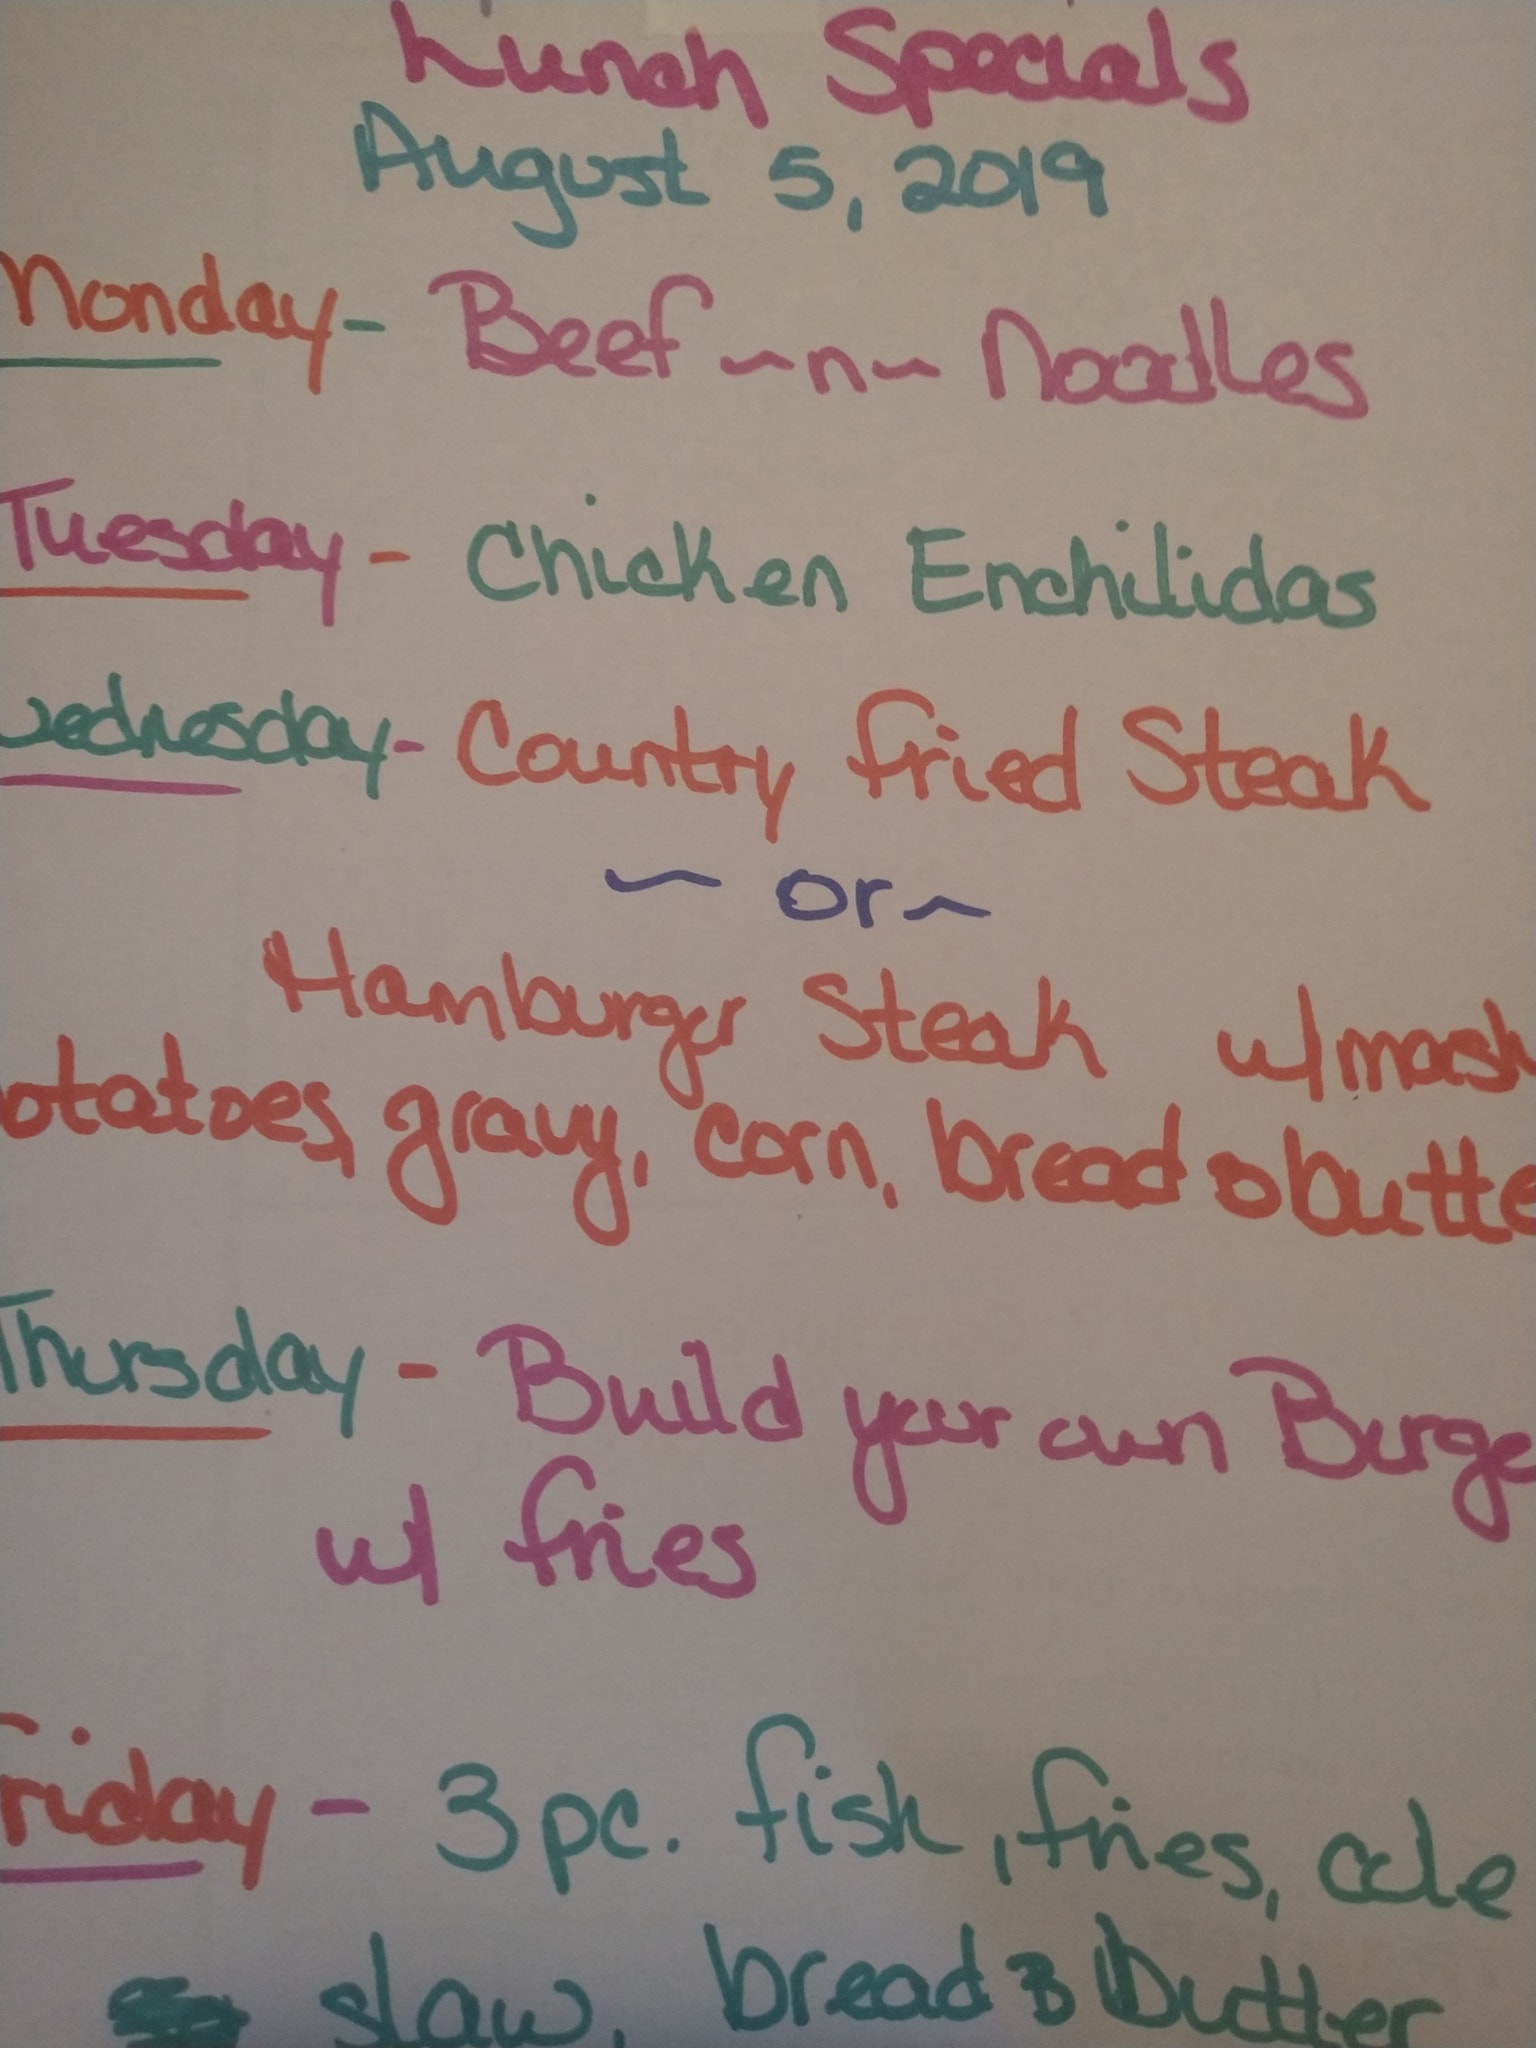 Lunch Specials
August 5, 2019
Monday - Beef ~n~ Noodles
Tuesday - Chicken Enchilidas
Wednesday - Country fried Steak
~ or ~
Hamburger Steak w/mash
otatoes, gravy, corn, bread & butte
Thursday - Build your own Burge
w/ fries
Friday - 3 pc. fish, fries, cole
slaw, bread & butter